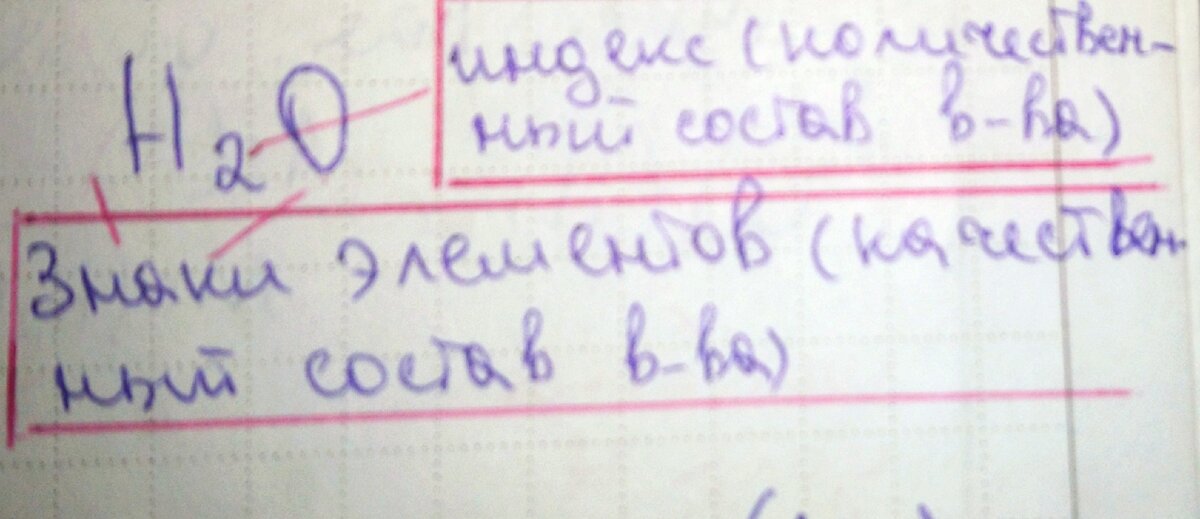 H₂O
индекс (количествен-
ный состав в-ва)
Знаки элементов (качествен-
ный состав в-ва)